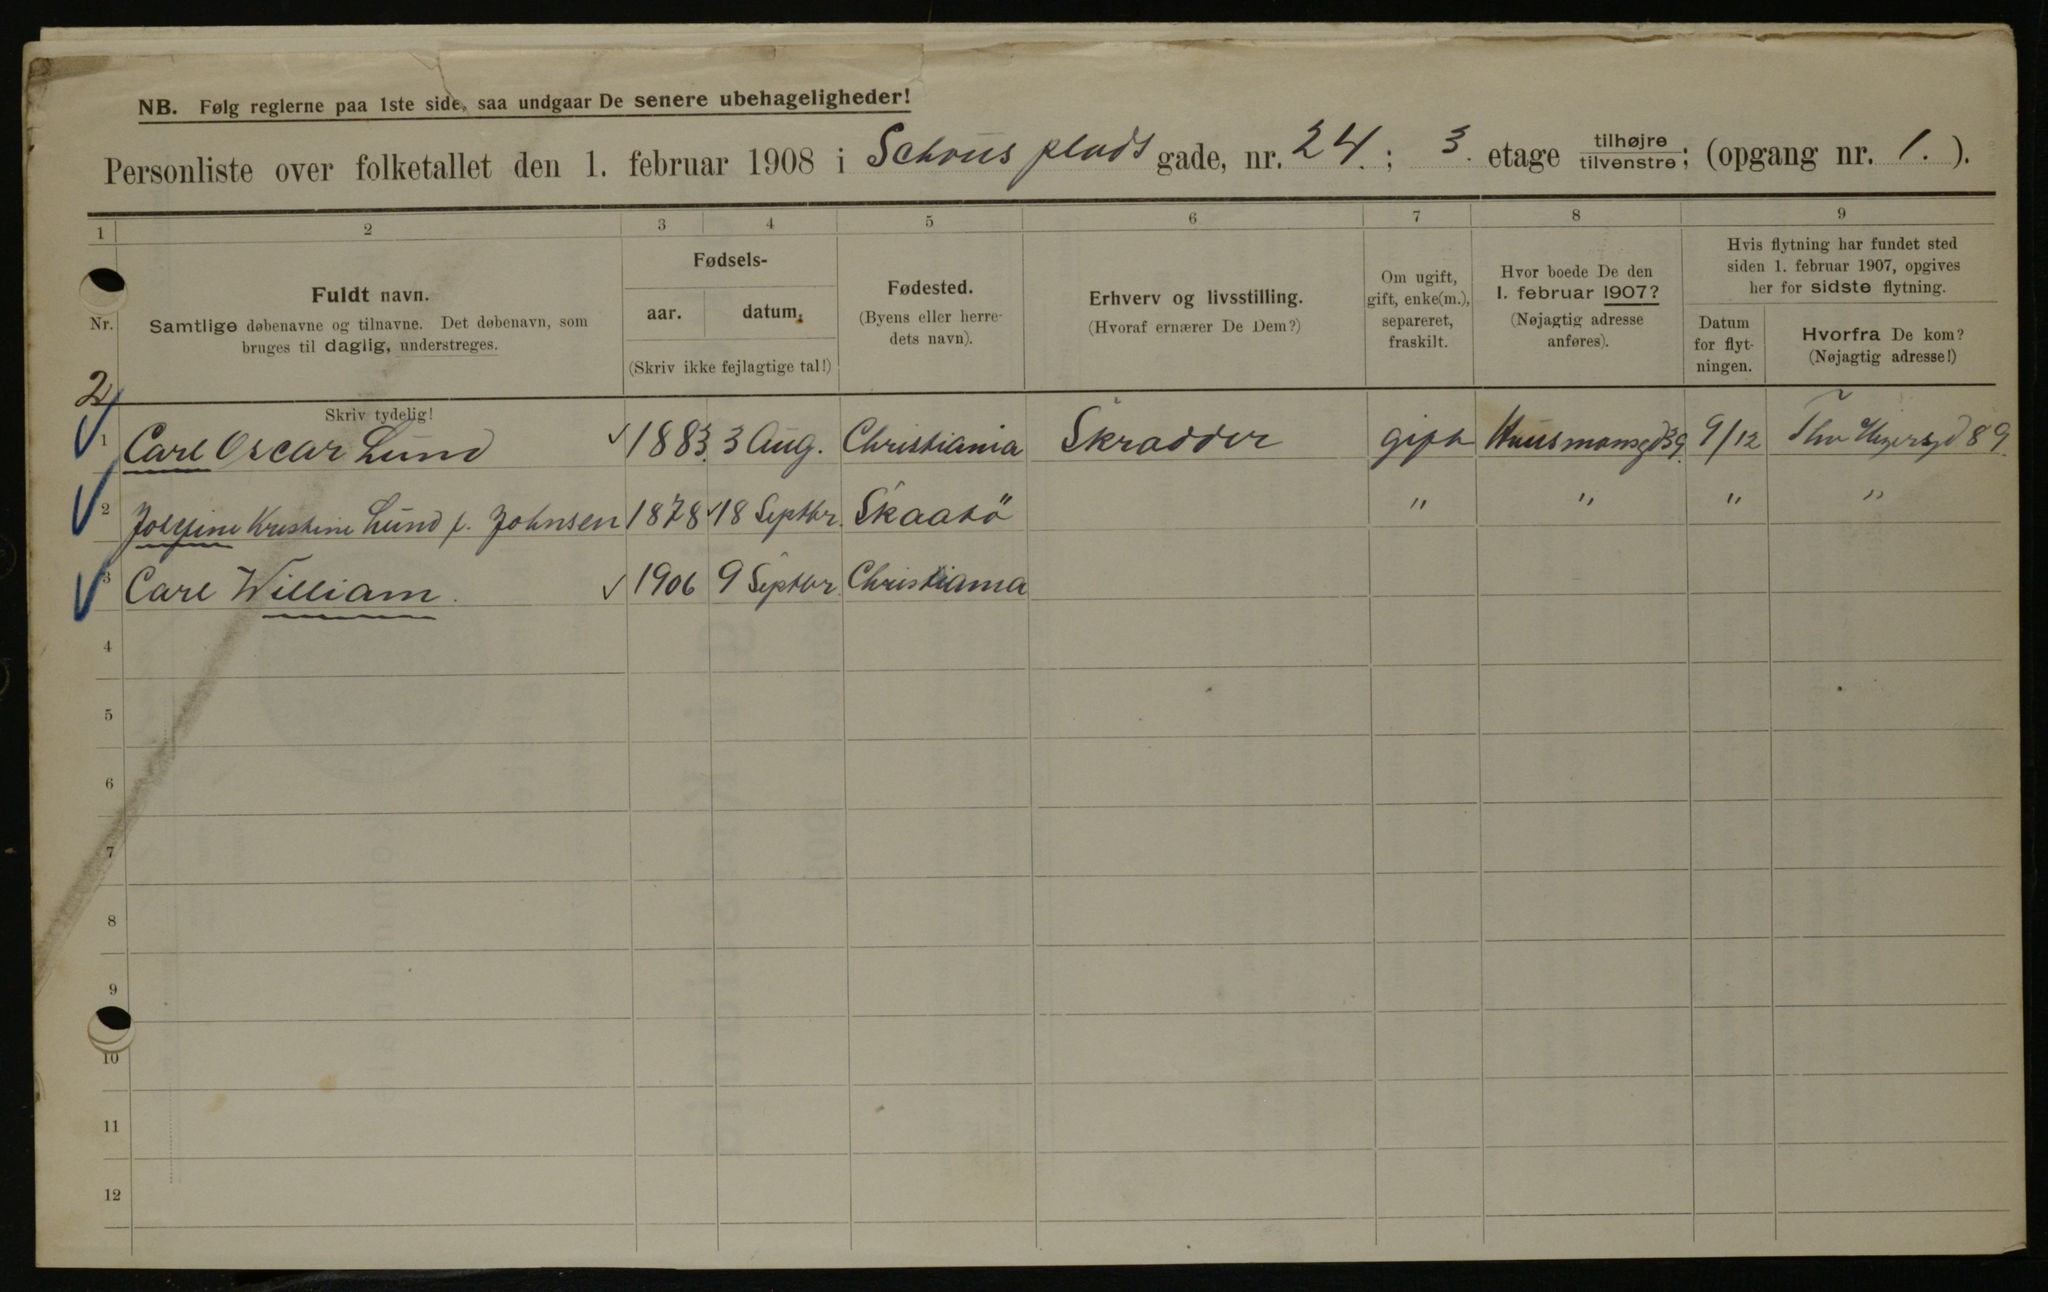 NB. Følg reglerne paa 1ste side, saa undgaar De senere ubehageligheder!
Personliste over folketallet den 1. februar 1908 i Schous plads gade, nr. 24.; 3. etage tilhøjre tilvenstre; (opgang nr. 1.).
1 2 3 4 5 6 7 8 9
Nr.
Fuldt navn.
Samtlige døbenavne og tilnavne. Det døbenavn, som
bruges til daglig, understreges.
Fødsels-
aar. datum.
(Skriv ikke fejlagtige tal!)
Fødested.
(Byens eller herre-
dets navn).
Erhverv og livsstilling.
(Hvoraf ernærer De Dem?)
Om ugift,
gift, enke(m.),
separeret,
fraskilt.
Hvor boede De den
1. februar 1907?
(Nøjagtig adresse
anføres).
Hvis flytning har fundet sted
siden 1. februar 1907, opgives
her for sidste flytning.
Datum
for flyt-
ningen.
Hvorfra De kom?
(Nøjagtig adresse!)
2
Skriv tydelig!
1 Carl Oscar Lund ✓ 1883. 3 Aug. Christiania Skradder gift 39. 9/12 89.
2 Josefine Kristine Lund f. Johnsen 1878 ✓ 18 Septbr. Skaatö " " " "
3 Carl William. ✓ 1906 9 Septbr. Christiania
4
5
6
7
8
9
10
11
12